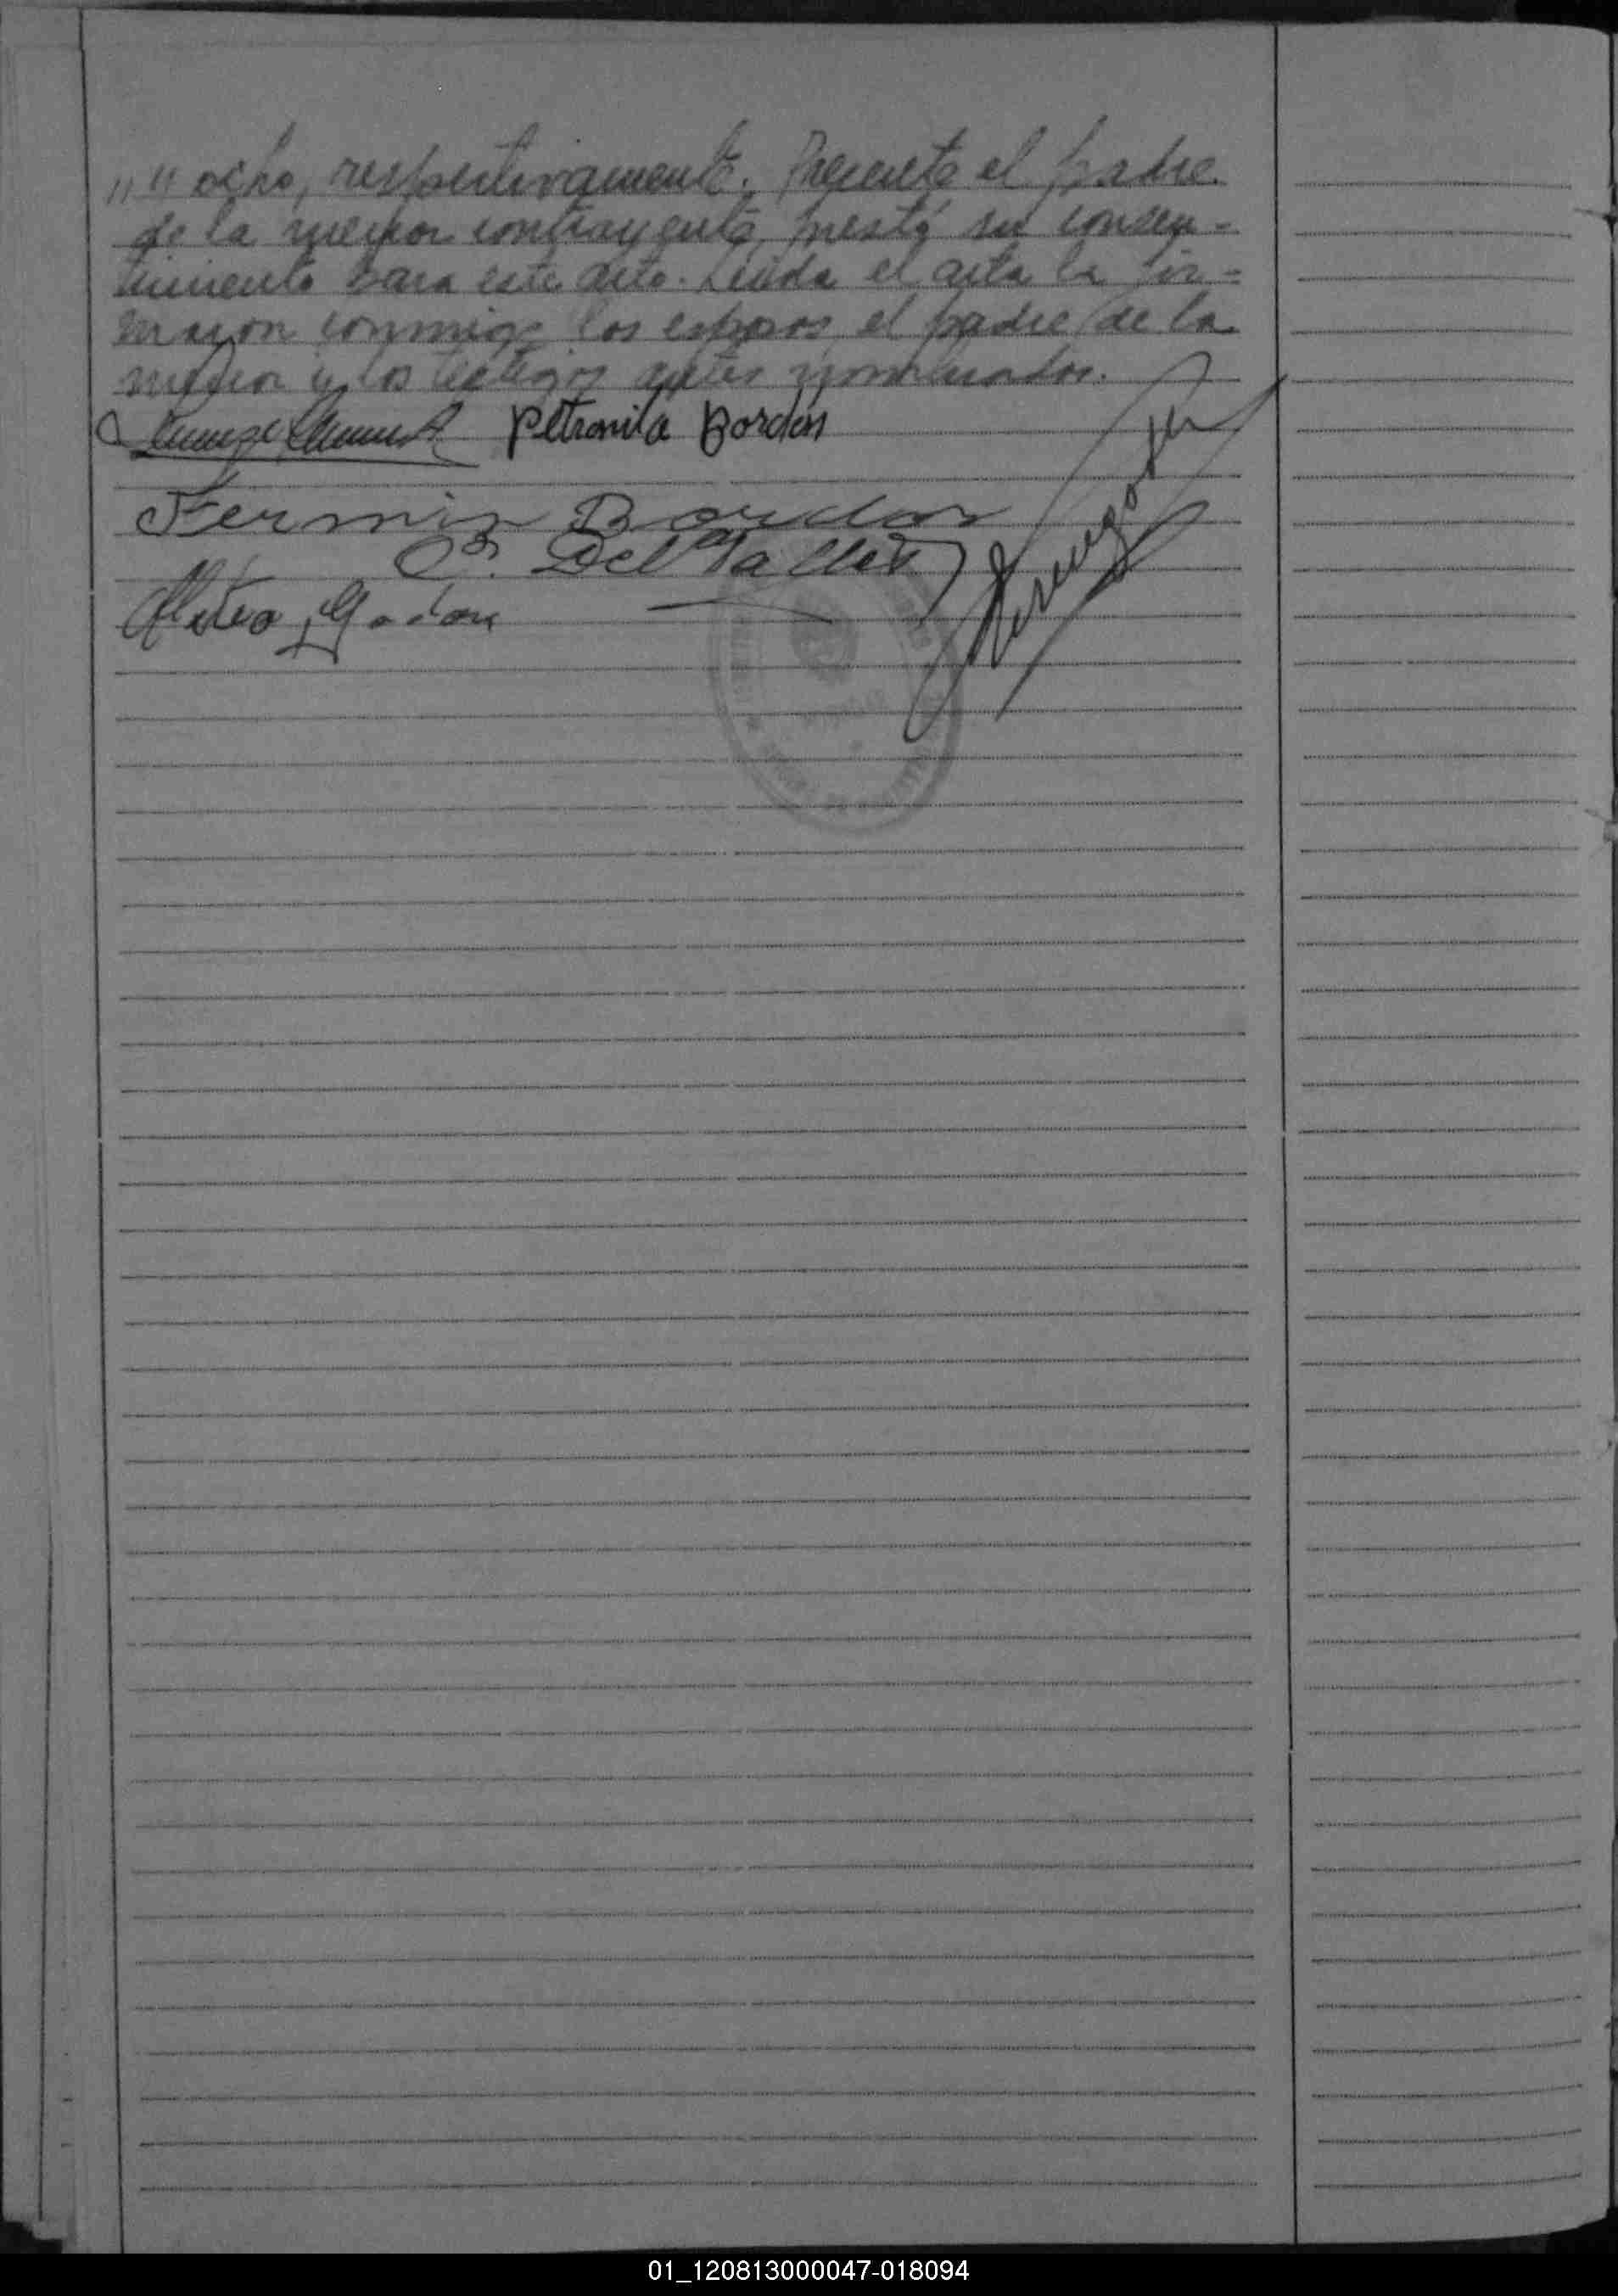 " " ocho, respectivamente. Presente el padre
de la menor contrayente, prestó su consen-
timiento para este acto. Leída el acta la fir-
maron conmigo los esposos, el padre de la
menor y los testigos antes nombrados.
Petronila Bordón
Fermin Bordon
Del Valle
Mateo Godoy
01_120813000047-018094